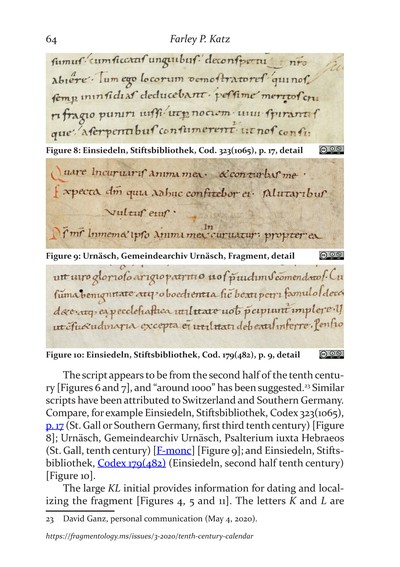 64
Farley P. Katz
sumus cum siccatis unguibus deconspectu nro
abiere. Tum ego locorum demostratores quinos
semp ininsidias deducebant. pessime meritos cru
rifragio puniri iussi. utp noctem uiui spirantes
que aserpentibus consumerent ut nos
Figure 8: Einsiedeln, Stiftsbibliothek, Cod. 323(1065), p. 17, detail
Quare incuruaris anima mea & conturbas me
Expecta dm quia adhuc confitebor ei salutaribus
vultus eius
In
Ds ms Inmemetipso anima mea curuatur propterea
Figure 9: Urnäsch, Gemeindearchiv Urnäsch, Fragment, detail
utt uiro glorioso arigio patritio uos puidimus comendatos. Cu
benignitate atq oboedientia beati petri famulos
atq ea ecclesiastica utilitate uob pcipiunt implere
excepta ei utilitati debeatis inferre
Figure 10: Einsiedeln, Stiftsbibliothek, Cod. 179(482), p. 9, detail
The script appears to be from the second half of the tenth centu-
ry [Figures 6 and 7], and “around 1000” has been suggested.23 Similar
scripts have been attributed to Switzerland and Southern Germany.
Compare, for example Einsiedeln, Stiftsbibliothek, Codex 323(1065),
p. 17 (St. Gall or Southern Germany, first third tenth century) [Figure
8]; Urnäsch, Gemeindearchiv Urnäsch, Psalterium iuxta Hebraeos
(St. Gall, tenth century) [F-monc] [Figure 9]; and Einsiedeln, Stifts-
bibliothek, Codex 179(482) (Einsiedeln, second half tenth century)
[Figure 10].
The large KL initial provides information for dating and local-
izing the fragment [Figures 4, 5 and 11]. The letters K and L are
23 David Ganz, personal communication (May 4, 2020).
https://fragmentology.ms/issues/3-2020/tenth-century-calendar